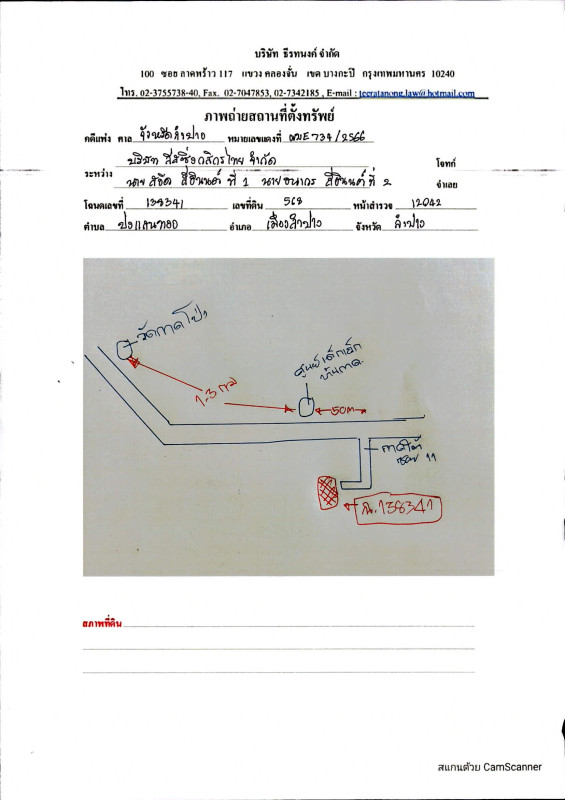 บริษัท ธีรทนงค์ จำกัด
100 ซอย ลาดพร้าว 117 แขวง คลองจั่น เขต บางกะปิ กรุงเทพมหานคร 10240
โทร. 02-3755738-40, Fax. 02-7047853, 02-7342185 , E-mail : teeratanong.law@hotmail.com
ภาพถ่ายสถานที่ตั้งทรัพย์
คดีแพ่ง ศาล จังหวัดลำปาง หมายเลขแดงที่ ผบE734/2566
บริษัท ลีสซิ่งกสิกรไทย จำกัด โจทก์
ระหว่าง นาย สีอินนต์ ที่ 1 นาย ธนากร สีอินนต์ ที่ 2 จำเลย
โฉนดเลขที่ 138341 เลขที่ดิน 568 หน้าสำรวจ 12042
ตำบล ปงแสนทอง อำเภอ เมืองลำปาง จังหวัด ลำปาง
วัดกาดโป่ง
ศูนย์เด็กเล็ก
1.3 กม
50m
กาดใต้
ซอย 11
ฉ.138341
สภาพที่ดิน
สแกนด้วย CamScanner